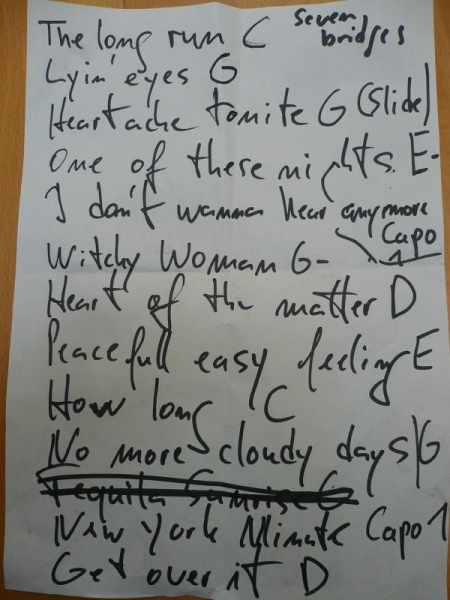 The long run C seven bridges
Lyin' eyes G
Heartache tonite G (Slide)
One of these nights E-
I don't wanna hear anymore
Capo 1
Witchy Woman G-
Heart of the matter D
Peacefull easy feeling E
How long C
No more cloudy days G
Tequila Sunrise G
New York Minute Capo 1
Get over it D